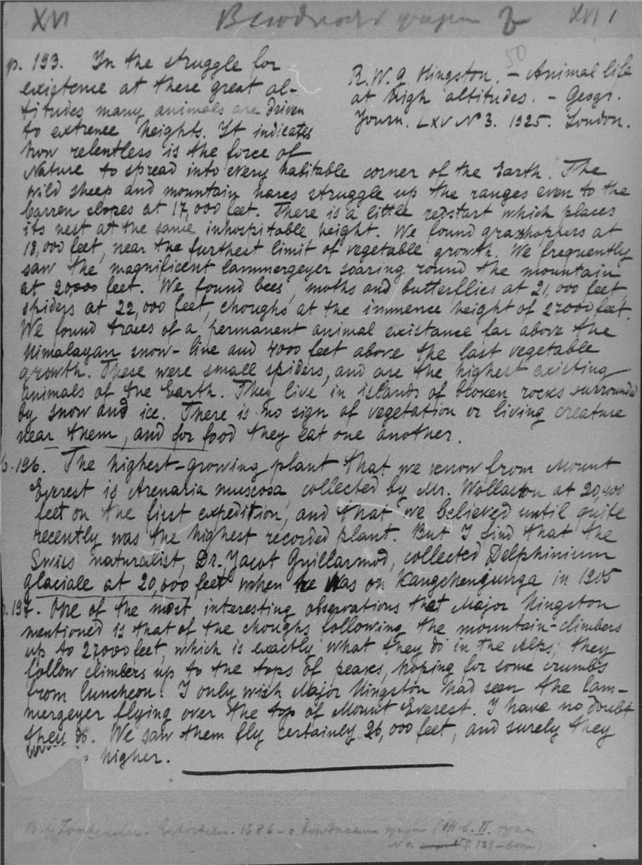 XVI
XVI
50
R.W.G. Hingston. – Animal life
at high altitudes. – Geogr.
Journ. LXV No 3. 1925. London.
p. 193. In the struggle for
existence at these great al-
titudes many animals are driven
to extreme heights. It indicates
how relentless is the force of
Nature to spread into every habitable corner of the Earth. The
wild sheep and mountain hares struggle up the ranges even to the
barren slopes at 17,000 feet. There is a little redstart which places
its nest at the same inhospitable height. We found grasshophers at
18,000 feet, near the furthest limit of vegetable growth. We frequently
saw the magnificent lammergeyer soaring round the mountain
at 20000 feet. We found bees, moths and butterflies at 21,000 feet
spiders at 22,000 feet, choughs at the immence height of 27000 feet.
We found traces of a permanent animal existance far above the
Himalayan snow-line and 4000 feet above the last vegetable
growth. These were small spiders, and are the highest existing
animals of the Earth. They live in islands of broken rocks surrounded
by snow and ice. There is no sign of vegetation or living creature
near them, and for food they eat one another.
p. 196. The highest-growing plant that we know from Mount
Everest is Arenaria muscosa collected by Mr. Wollaston at 20,400
feet on the first expedition, and that we believed until quite
recently was the highest recorded plant. But I find that the
Swiss naturalist, Dr. Jacot Guillarmod, collected Delphinium
glaciale at 20,000 feet when he was on Kangchengunga in 1905
p. 197. One of the most interesting observations that Major Hingston
mentioned is that of the choughs following the mountain-climbers
up to 27000 feet, which is exactly what they do in the Alps; they
follow climbers up to the tops of peaks, hoping for some crumbs
from luncheon. I only wish Major Hingston had seen the lam-
mergeyer flying over the top of Mount Everest. I have no doubt
they do. We saw them fly certainly 26,000 feet, and surely they
higher.